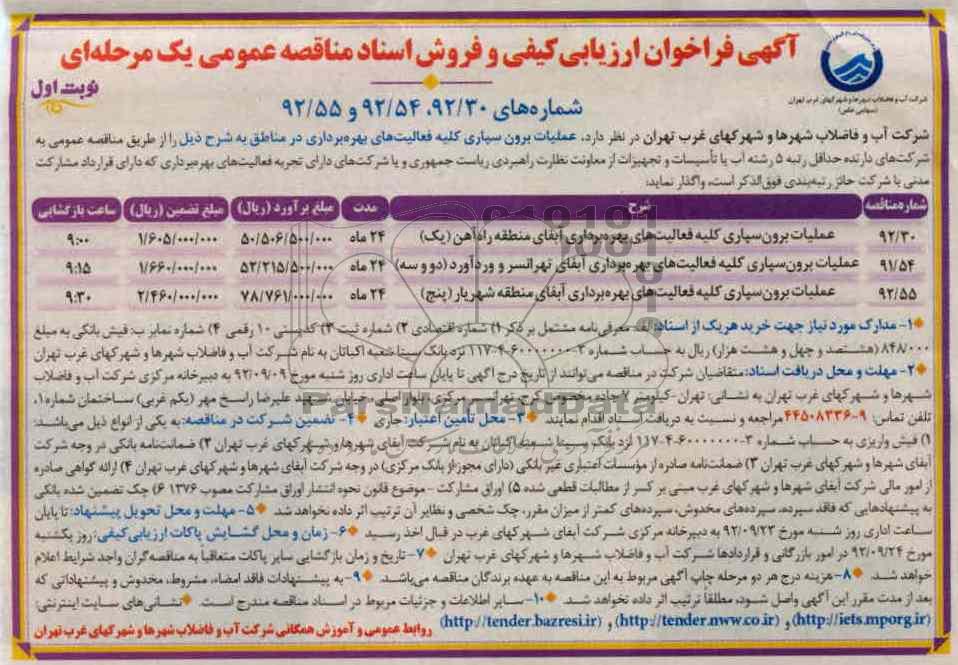 آگهی فراخوان ارزیابی کیفی و فروش اسناد مناقصه عمومی یک مرحله‌ای
نوبت اول
شماره‌های ۹۲/۳۰، ۹۲/۵۴ و ۹۲/۵۵
شرکت آب و فاضلاب شهرها و شهرکهای غرب تهران
(سهامی خاص)
شرکت آب و فاضلاب شهرها و شهرکهای غرب تهران در نظر دارد، عملیات برون سپاری کلیه فعالیت‌های بهره‌برداری در مناطق به شرح ذیل را از طریق مناقصه عمومی به
شرکت‌های دارنده حداقل رتبه ۵ رشته آب یا تأسیسات و تجهیزات از معاونت نظارت راهبردی ریاست جمهوری و یا شرکت‌های دارای تجربه فعالیت‌های بهره‌برداری که دارای قرارداد مشارکت
مدنی با شرکت حائز رتبه‌بندی فوق‌الذکر است، واگذار نماید:
شماره مناقصه شرح مدت مبلغ برآورد (ریال) مبلغ تضمین (ریال) ساعت بازگشایی
۹۲/۳۰ عملیات برون‌سپاری کلیه فعالیت‌های بهره‌برداری آبفای منطقه راه‌آهن (یک) ۲۴ ماه ۵۰/۵۰۶/۵۰۰/۰۰۰ ۱/۶۰۵/۰۰۰/۰۰۰ ۹:۰۰
۹۱/۵۴ عملیات برون‌سپاری کلیه فعالیت‌های بهره‌برداری آبفای تهرانسر و وردآورد (دو و سه) ۲۴ ماه ۵۲/۲۱۵/۵۰۰/۰۰۰ ۱/۶۶۰/۰۰۰/۰۰۰ ۹:۱۵
۹۲/۵۵ عملیات برون‌سپاری کلیه فعالیت‌های بهره‌برداری آبفای منطقه شهریار (پنج) ۲۴ ماه ۷۸/۷۶۱/۰۰۰/۰۰۰ ۲/۴۶۰/۰۰۰/۰۰۰ ۹:۳۰
۱- مدارک مورد نیاز جهت خرید هریک از اسناد: الف. معرفی‌نامه مشتمل بر ذکر ۱) شماره اقتصادی ۲) شماره ثبت ۳) کدپستی ۱۰ رقمی ۴) شماره نمابر ب: فیش بانکی به مبلغ
۸۴۸/۰۰۰ (هشتصد و چهل و هشت هزار) ریال به حساب شماره ۳-۶۰۰۰۰۰۰۰-۴-۱۱۷ نزد بانک سینا شعبه اکباتان به نام شرکت آب و فاضلاب شهرها و شهرکهای غرب تهران
۲- مهلت و محل دریافت اسناد: متقاضیان شرکت در مناقصه می‌توانند از تاریخ درج آگهی تا پایان ساعت اداری روز شنبه مورخ ۹۲/۰۹/۰۹ به دبیرخانه مرکزی شرکت آب و فاضلاب
شهرها و شهرکهای غرب تهران به نشانی: تهران- کیلومتر جاده مخصوص کرج تهرانسر مرکزی بلوار اصلی، خیابان شهید علیرضا راسخ مهر (یکم غربی) ساختمان شماره۱،
تلفن تماس: ۹-۴۴۵۰۸۳۳۶ مراجعه و نسبت به دریافت اسناد اقدام نمایند ۳- محل تأمین اعتبار: جاری ۴- تضمین شرکت در مناقصه: به یکی از انواع ذیل می‌باشد:
۱) فیش واریزی به حساب شماره ۳-۶۰۰۰۰۰۰۰-۴-۱۱۷ نزد بانک سینا شعبه اکباتان به نام شرکت آبفای شهرها و شهرکهای غرب تهران ۲) ضمانت‌نامه بانکی در وجه شرکت
آبفای شهرها و شهرکهای غرب تهران ۳) ضمانت‌نامه صادره از مؤسسات اعتباری غیر بانکی (دارای مجوز از بانک مرکزی) در وجه شرکت آبفای شهرها و شهرکهای غرب تهران ۴) ارائه گواهی صادره
از امور مالی شرکت آبفای شهرها و شهرکهای غرب مبنی بر کسر از مطالبات قطعی شده ۵) اوراق مشارکت - موضوع قانون نحوه انتشار اوراق مشارکت مصوب ۱۳۷۶ ۶) چک تضمین شده بانکی
به پیشنهادهایی که فاقد سپرده، سپرده‌های مخدوش، سپرده‌های کمتر از میزان مقرر، چک شخصی و نظایر آن ترتیب اثر داده نخواهد شد. ۵- مهلت و محل تحویل پیشنهاد: تا پایان
ساعت اداری روز شنبه مورخ ۹۲/۰۹/۲۳ به دبیرخانه مرکزی شرکت آبفای شهرکهای غرب در قبال اخذ رسید ۶- زمان و محل گشایش پاکات ارزیابی کیفی: روز یکشنبه
مورخ ۹۲/۰۹/۲۴ در امور بازرگانی و قراردادها شرکت آب و فاضلاب شهرها و شهرکهای غرب تهران ۷- تاریخ و زمان بازگشایی سایر پاکات متعاقباً به مناقصه‌گران واجد شرایط اعلام
خواهد شد. ۸- هزینه درج هر دو مرحله چاپ آگهی مربوط به این مناقصه به عهده برندگان مناقصه می‌باشد. ۹- به پیشنهادات فاقد امضاء، مشروط، مخدوش و پیشنهاداتی که
بعد از مدت مقرر این آگهی واصل شود، مطلقاً ترتیب اثر داده نخواهد شد. ۱۰- سایر اطلاعات و جزئیات مربوط در اسناد مناقصه مندرج است. نشانی‌های سایت اینترنتی:
(http://iets.mporg.ir) و (http://tender.nww.co.ir) و (http://tender.bazresi.ir)
روابط عمومی و آموزش همگانی شرکت آب و فاضلاب شهرها و شهرکهای غرب تهران
ParsNamadData